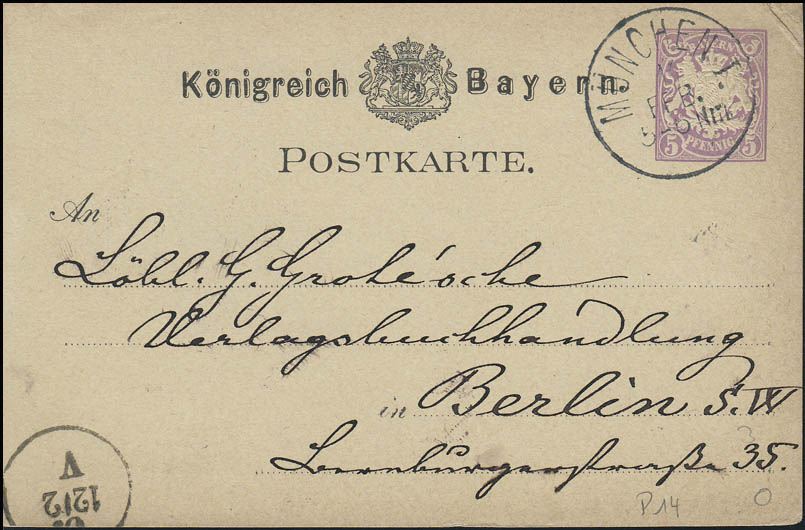 Königreich Bayern.
POSTKARTE.
MÜNCHEN I.
FEB.
5-6 Nm.
BAYERN
5 5
5 PFENNIG 5
An
Löbl. G. Grote'sche
Verlagsbuchhandlung
in Berlin S.W
Bernburgerstraße 35.
12/2
V
P14
O